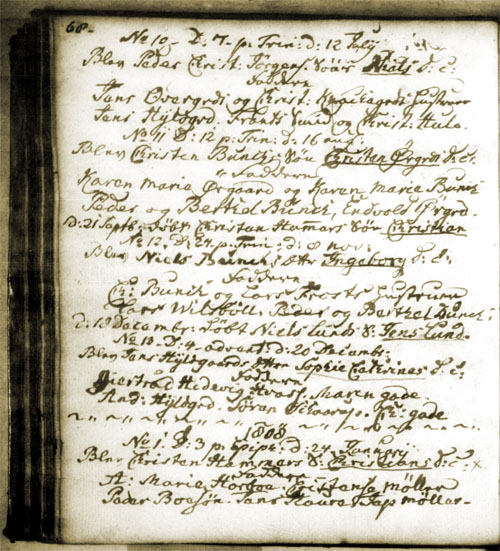 68.
No 10. D: 7. p: Trin: d: 12 July
Blev Peder Christ: Jørgens: Søn Niels d: C:
Faddern
Jens Overgrd: og Christ: Hustrue
Jens Hyldgrd. Frents Smid og Christ: Hule.
No 11 D: 12 p: Trin: d: 16 aug:
Blev Christen Bunchs: Søn Christen Ørgrd d: C:
Faddern
Karen Maria Ørgaard og Karen Maria Bunch
Peder og Berthel Bunch, Endvold Ørgrd.
D: 21 Septb: døbt Christen Hamars Søn Christian
No 12. D: 24. p: Trin: d: 8 nov:
Blev Niels Bunchs Datter Ingeborg d: C:
Faddern
Chr: Bunch og Lars Frosts Hustruer
Lars Wilsbøll. Peder og Berthel Bunch
d: 18 Decembr: døbt Niels Lunds S: Jens Lund.
No 13. D: 4. advent d: 20 Decemb:
Blev Jens Hyldgaards Datter Sophie Catrines d: C:
Faddern
Giertrud Hedevig Hvass. Maren gade
And: Hyldgrd. Søren Chr: gade
1808
No 1. D: 3 p: Epiph: d: 24 Januarj
Blev Christen Hammers S: Christians d: C: x
Faddern
A: Maria Christense møller
Peder Boesøn. Jens Jep møller